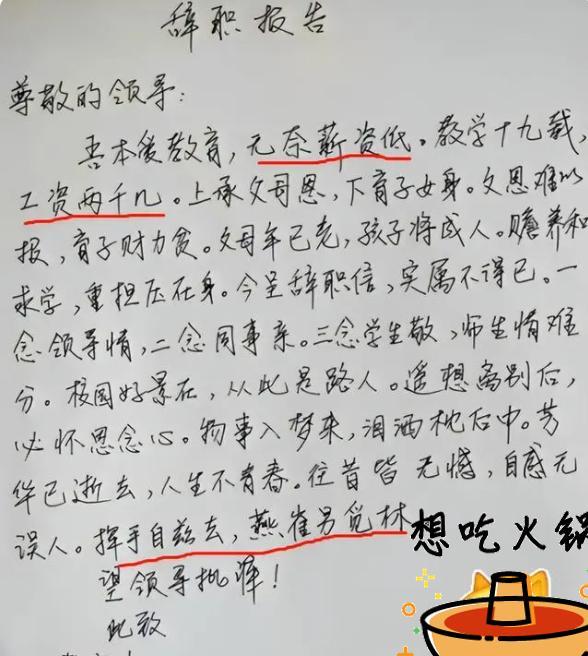 辞职报告
尊敬的领导:
吾本爱教育，无奈薪资低。教学十九载，
工资两千几。上承父母恩，下育子女身。父恩难以
报，育子财力贫。父母年已老，孩子将成人。赡养和
求学，重担压在身。今呈辞职信，实属不得已。一
念领导情，二念同事亲。三念学生敬，师生情难
分。校园好景在，从此是路人。遥想离别后，
必怀思念心。物事入梦来，泪洒枕后中。芳
华已逝去，人生不青春。往昔皆无憾，自感无
误人。挥手自兹去，燕雀另觅林
望领导批准！
此致
想吃火锅